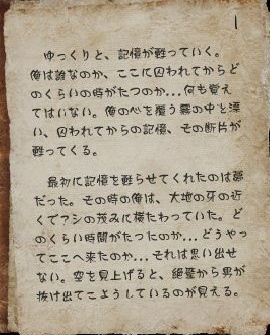 1
ゆっくりと、記憶が甦っていく。
俺は誰なのか、ここに囚われてからど
のくらいの時がたつのか...何も覚え
てはいない。俺の心を覆う霧の中を漂
い、囚われてからの記憶、その断片が
甦ってくる。
最初に記憶を甦らせてくれたのは夢
だった。その時の俺は、大地の牙の近
くでアシの茂みに横たわっていた。ど
のくらい時間がたったのか...どうやっ
てここへ来たのか...それは思い出せ
ない。空を見上げると、絶壁から男が
抜け出てこようしているのが見える。